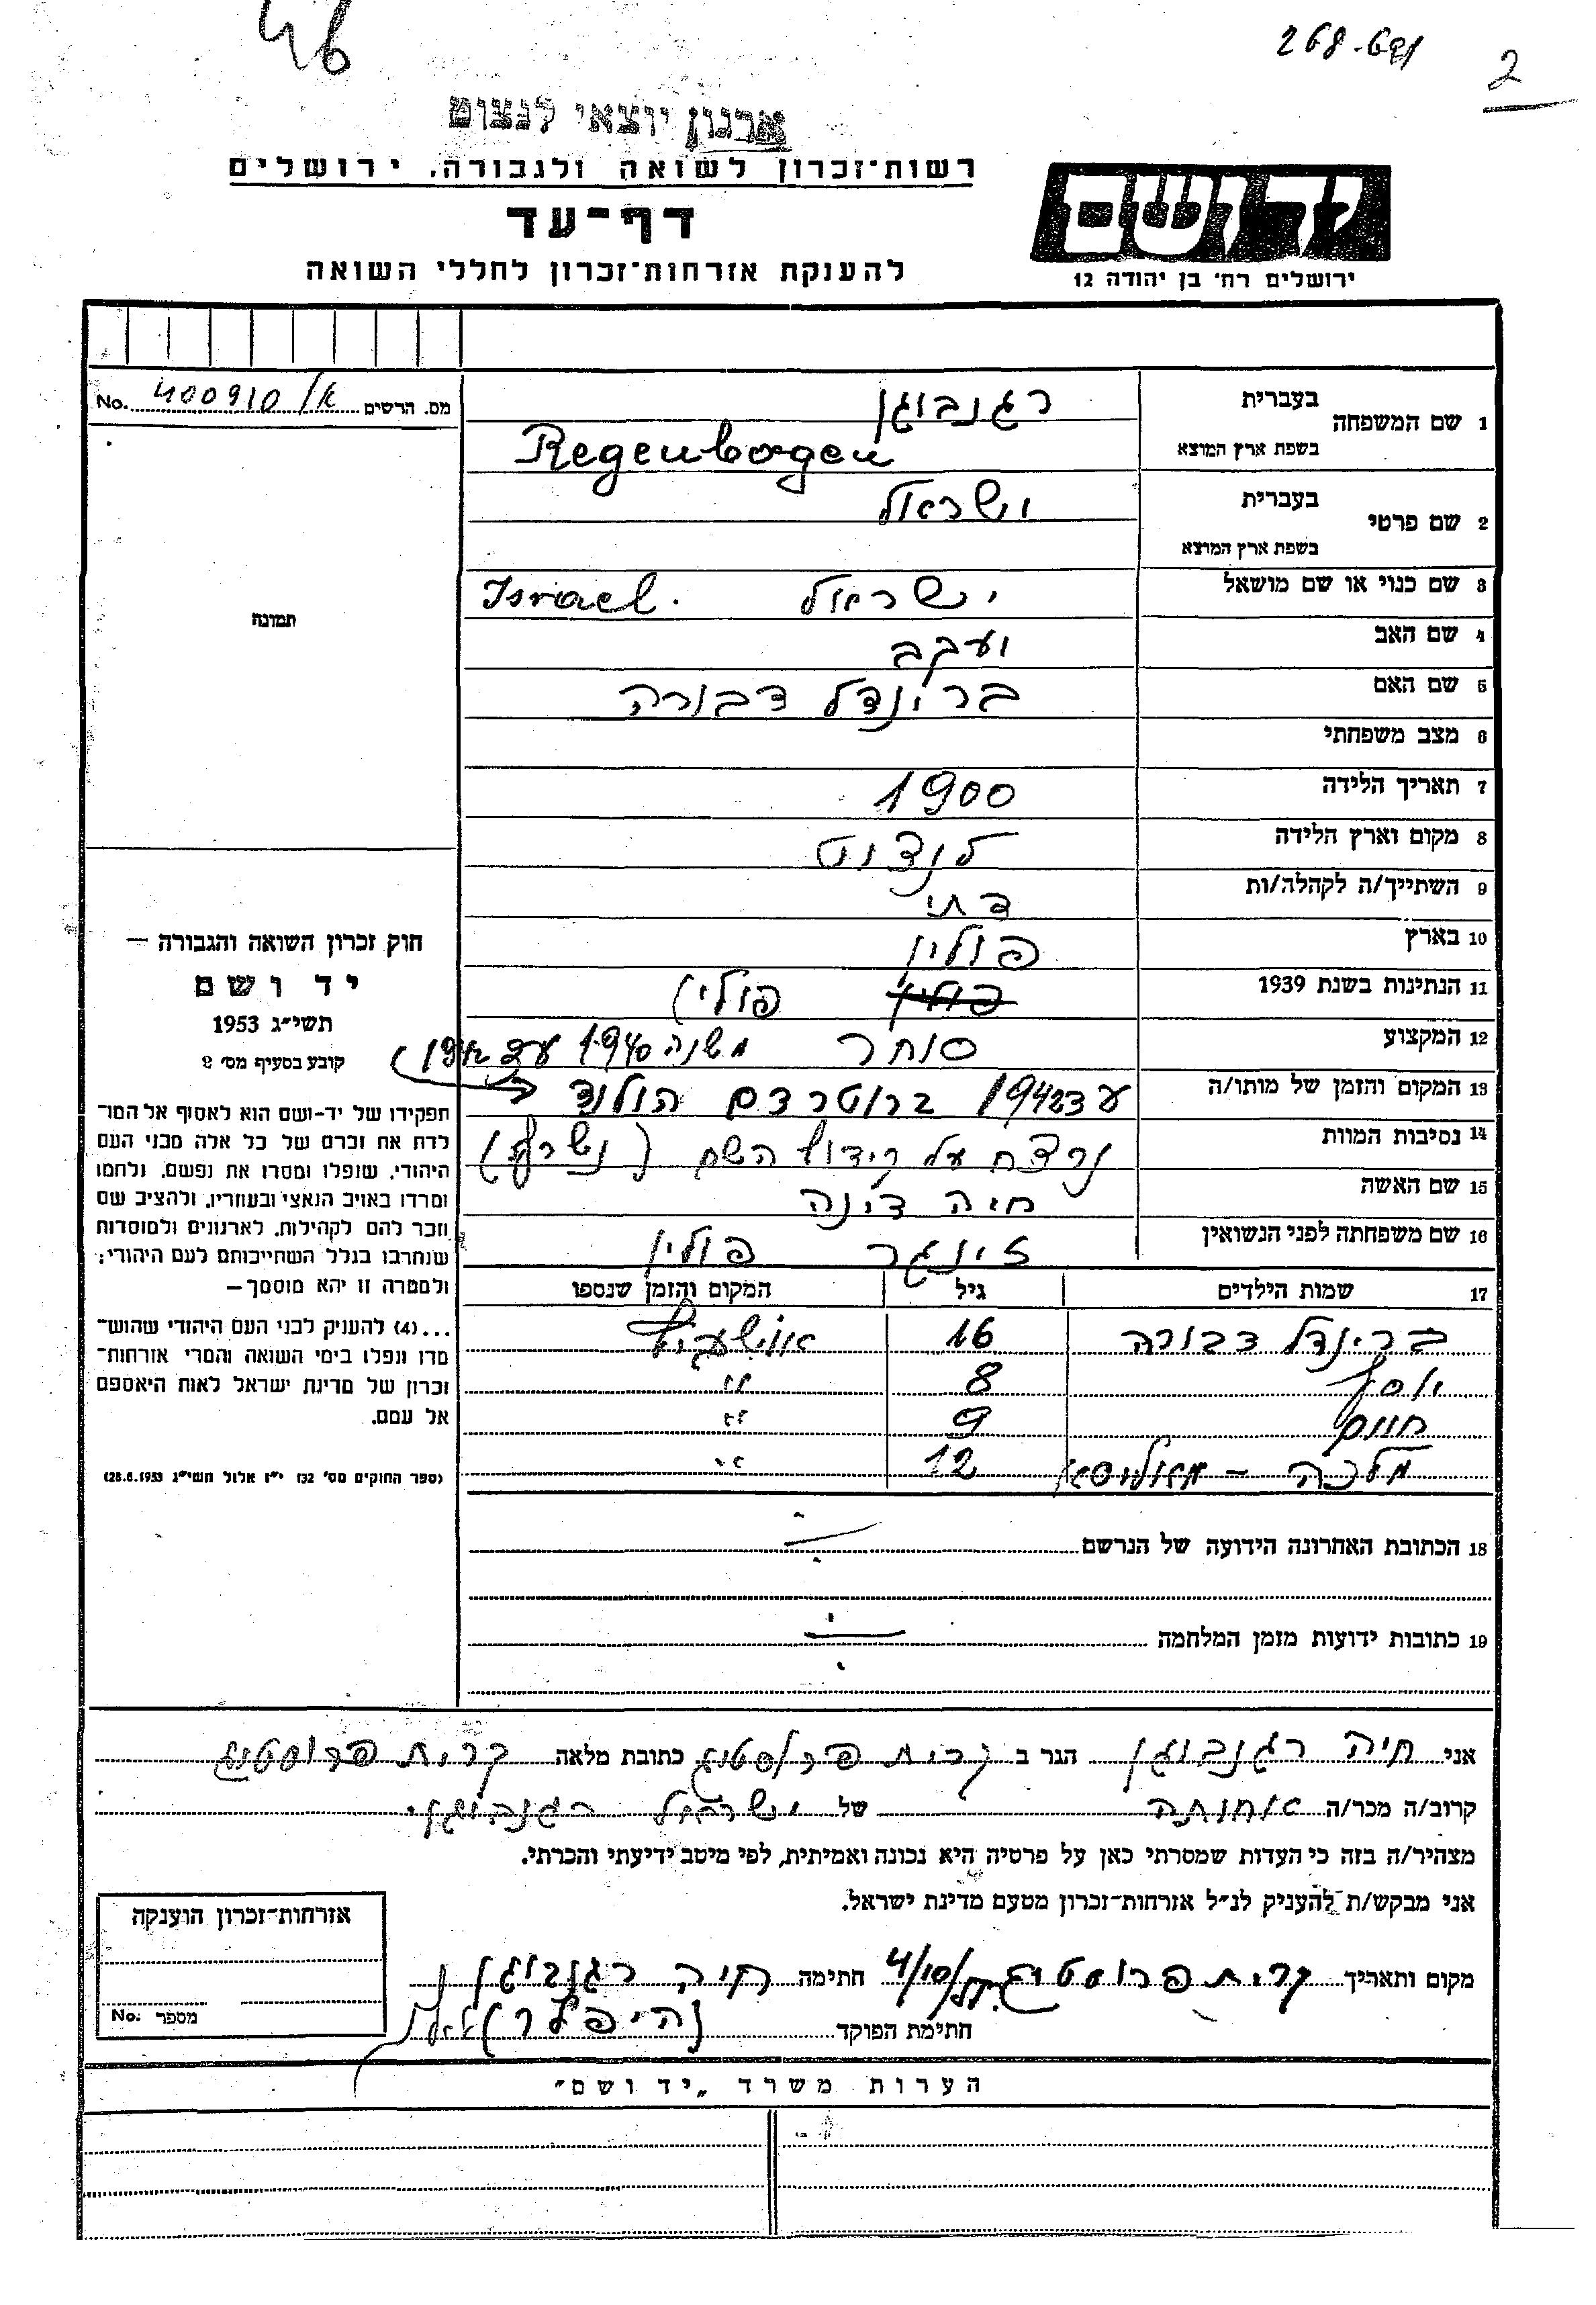 46
268-691
2
ארגון יוצאי לנצוט
רשות-זכרון לשואה ולגבורה, ירושלים
דף-עד
להענקת אזרחות-זכרון לחללי השואה
יד ושם
ירושלים רח' בן יהודה 12
מס. הרשים א/ 400910 No.
1 שם המשפחה בעברית רגנבוגן
בשפת ארץ המוצא Regenbogen
2 שם פרטי בעברית ישראל
בשפת ארץ המוצא
3 שם כנוי או שם מושאל ישראל Israel.
4 שם האב יעקב
5 שם האם בריינדל דבורה
6 מצב משפחתי
7 תאריך הלידה 1900
8 מקום וארץ הלידה לנצוט
9 השתייך/ה לקהלה/ות דתי
10 בארץ פולין
11 הנתינות בשנת 1939 פולין פולין
12 המקצוע סוחר משנה 1940 עד 1942
13 המקום והזמן של מותו/ה עד 1942 ברוטרדם הולנד
14 נסיבות המוות נרצח על קידוש השם (נשרף)
15 שם האשה חיה דינה
16 שם משפחתה לפני הנשואין זינגר פולין
17 שמות הילדים גיל המקום והזמן שנספו
בריינדל דבורה 16 אושוויץ
יוסף 8 "
חיים 9 "
מלכה - 12 "
18 הכתובת האחרונה הידועה של הנרשם
19 כתובות ידועות מזמן המלחמה
תמונה
חוק זכרון השואה והגבורה —
יד ושם
תשי"ג 1953
קובע בסעיף מס' 2
תפקידו של יד-ושם הוא לאסוף אל המו-
לדת את זכרם של כל אלה מבני העם
היהודי, שנפלו ומסרו את נפשם, נלחמו
ומרדו באויב הנאצי ובעוזריו, ולהציב שם
וזכר להם לקהילות, לארגונים ולמוסדות
שנחרבו בגלל השתייכותם לעם היהודי;
ולמטרה זו יהא מוסמך —
...(4) להעניק לבני העם היהודי שהוש-
מדו ונפלו בימי השואה והמרי אזרחות-
זכרון של מדינת ישראל לאות היאספם
אל עמם.
(ספר החוקים מס' 132 י"ז אלול תשי"ג 28.8.1953)
אני חיה רגנבוגן הגר ב קרית פרוסטיג כתובת מלאה קרית פרוסטיג
קרוב/ה מכר/ה אחותה של ישראל רגנבוגן
מצהיר/ה בזה כי העדות שמסרתי כאן על פרטיה היא נכונה ואמיתית, לפי מיטב ידיעתי והכרתי.
אני מבקש/ת להעניק לנ"ל אזרחות-זכרון מטעם מדינת ישראל.
מקום ותאריך קרית פרוסטיג 4/10/ חתימה חיה רגנבוגן
חתימת הפוקד
אזרחות-זכרון הוענקה
מספר No.
הערות משרד "יד ושם"